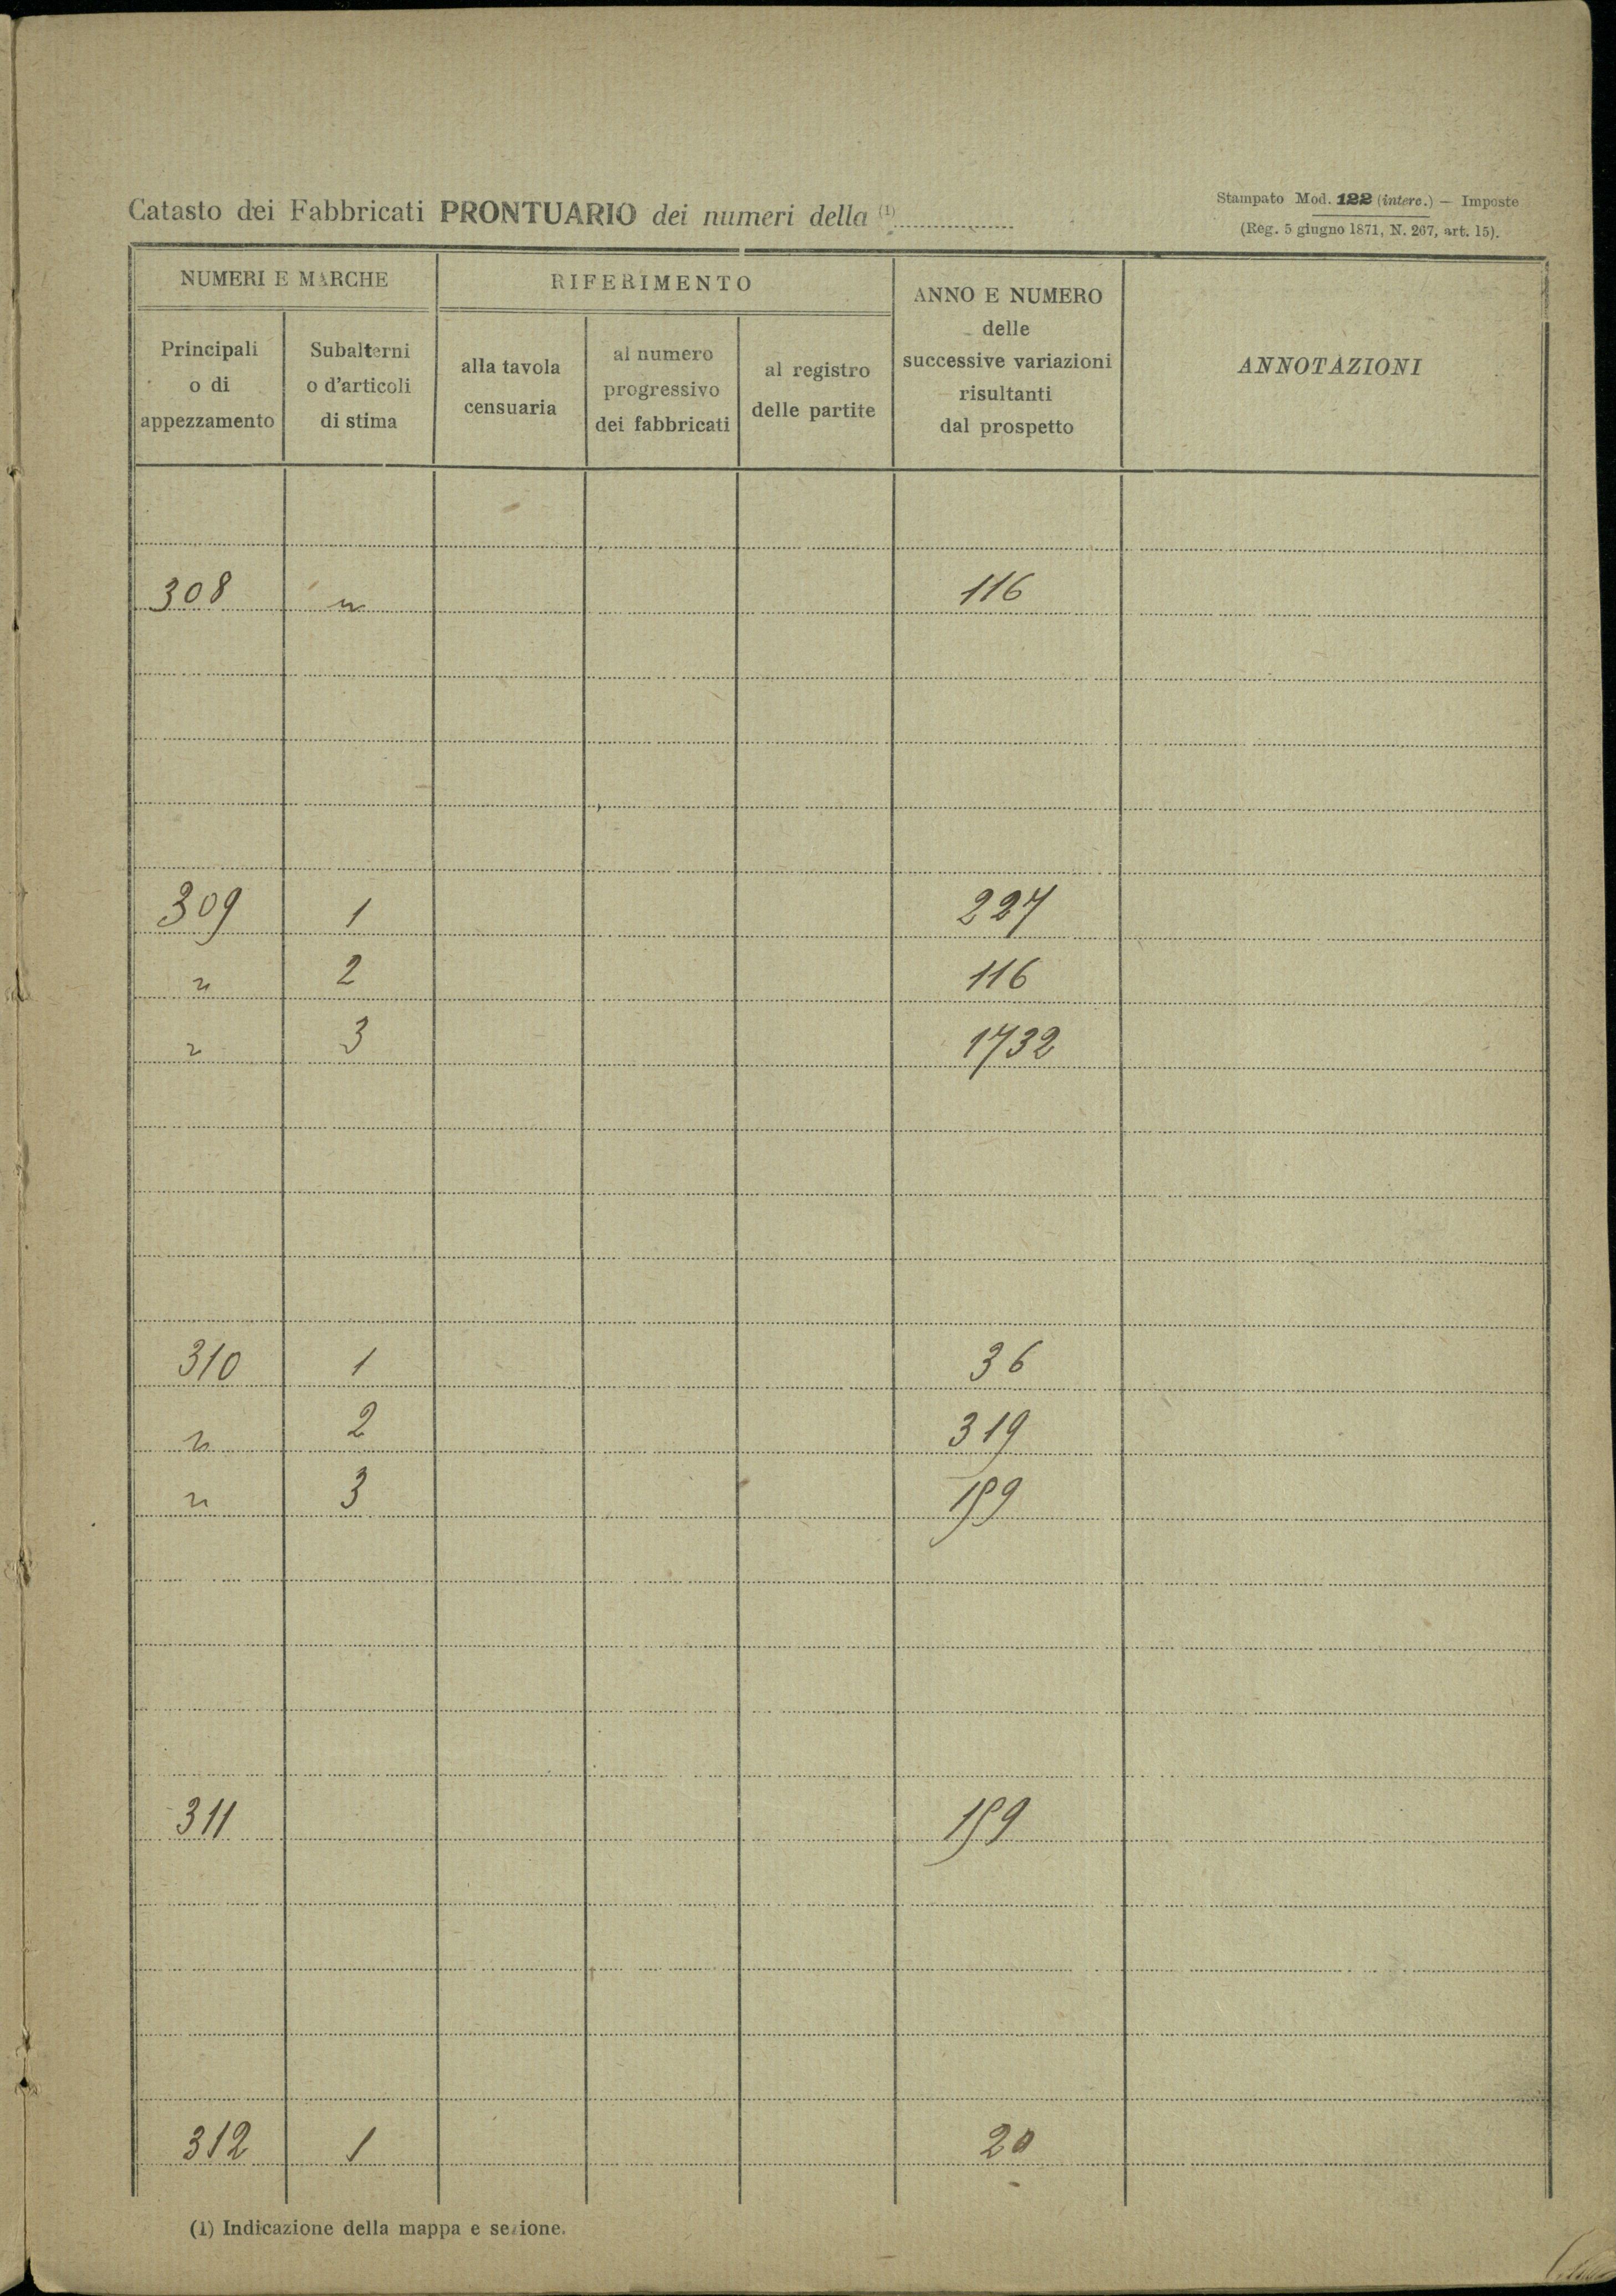 Catasto dei Fabbricati PRONTUARIO dei numeri della (1)
Stampato Mod. 122 (interc.) — Imposte
(Reg. 5 giugno 1871, N. 267, art. 15).
NUMERI E MARCHE
RIFERIMENTO
ANNO E NUMERO
delle
successive variazioni
risultanti
dal prospetto
ANNOTAZIONI
Principali
o di
appezzamento
Subalterni
o d'articoli
di stima
alla tavola
censuaria
al numero
progressivo
dei fabbricati
al registro
delle partite
308 " 116
309 1 227
" 2 116
" 3 1732
310 1 36
" 2 319
" 3
311
312 1 20
(1) Indicazione della mappa e sezione.